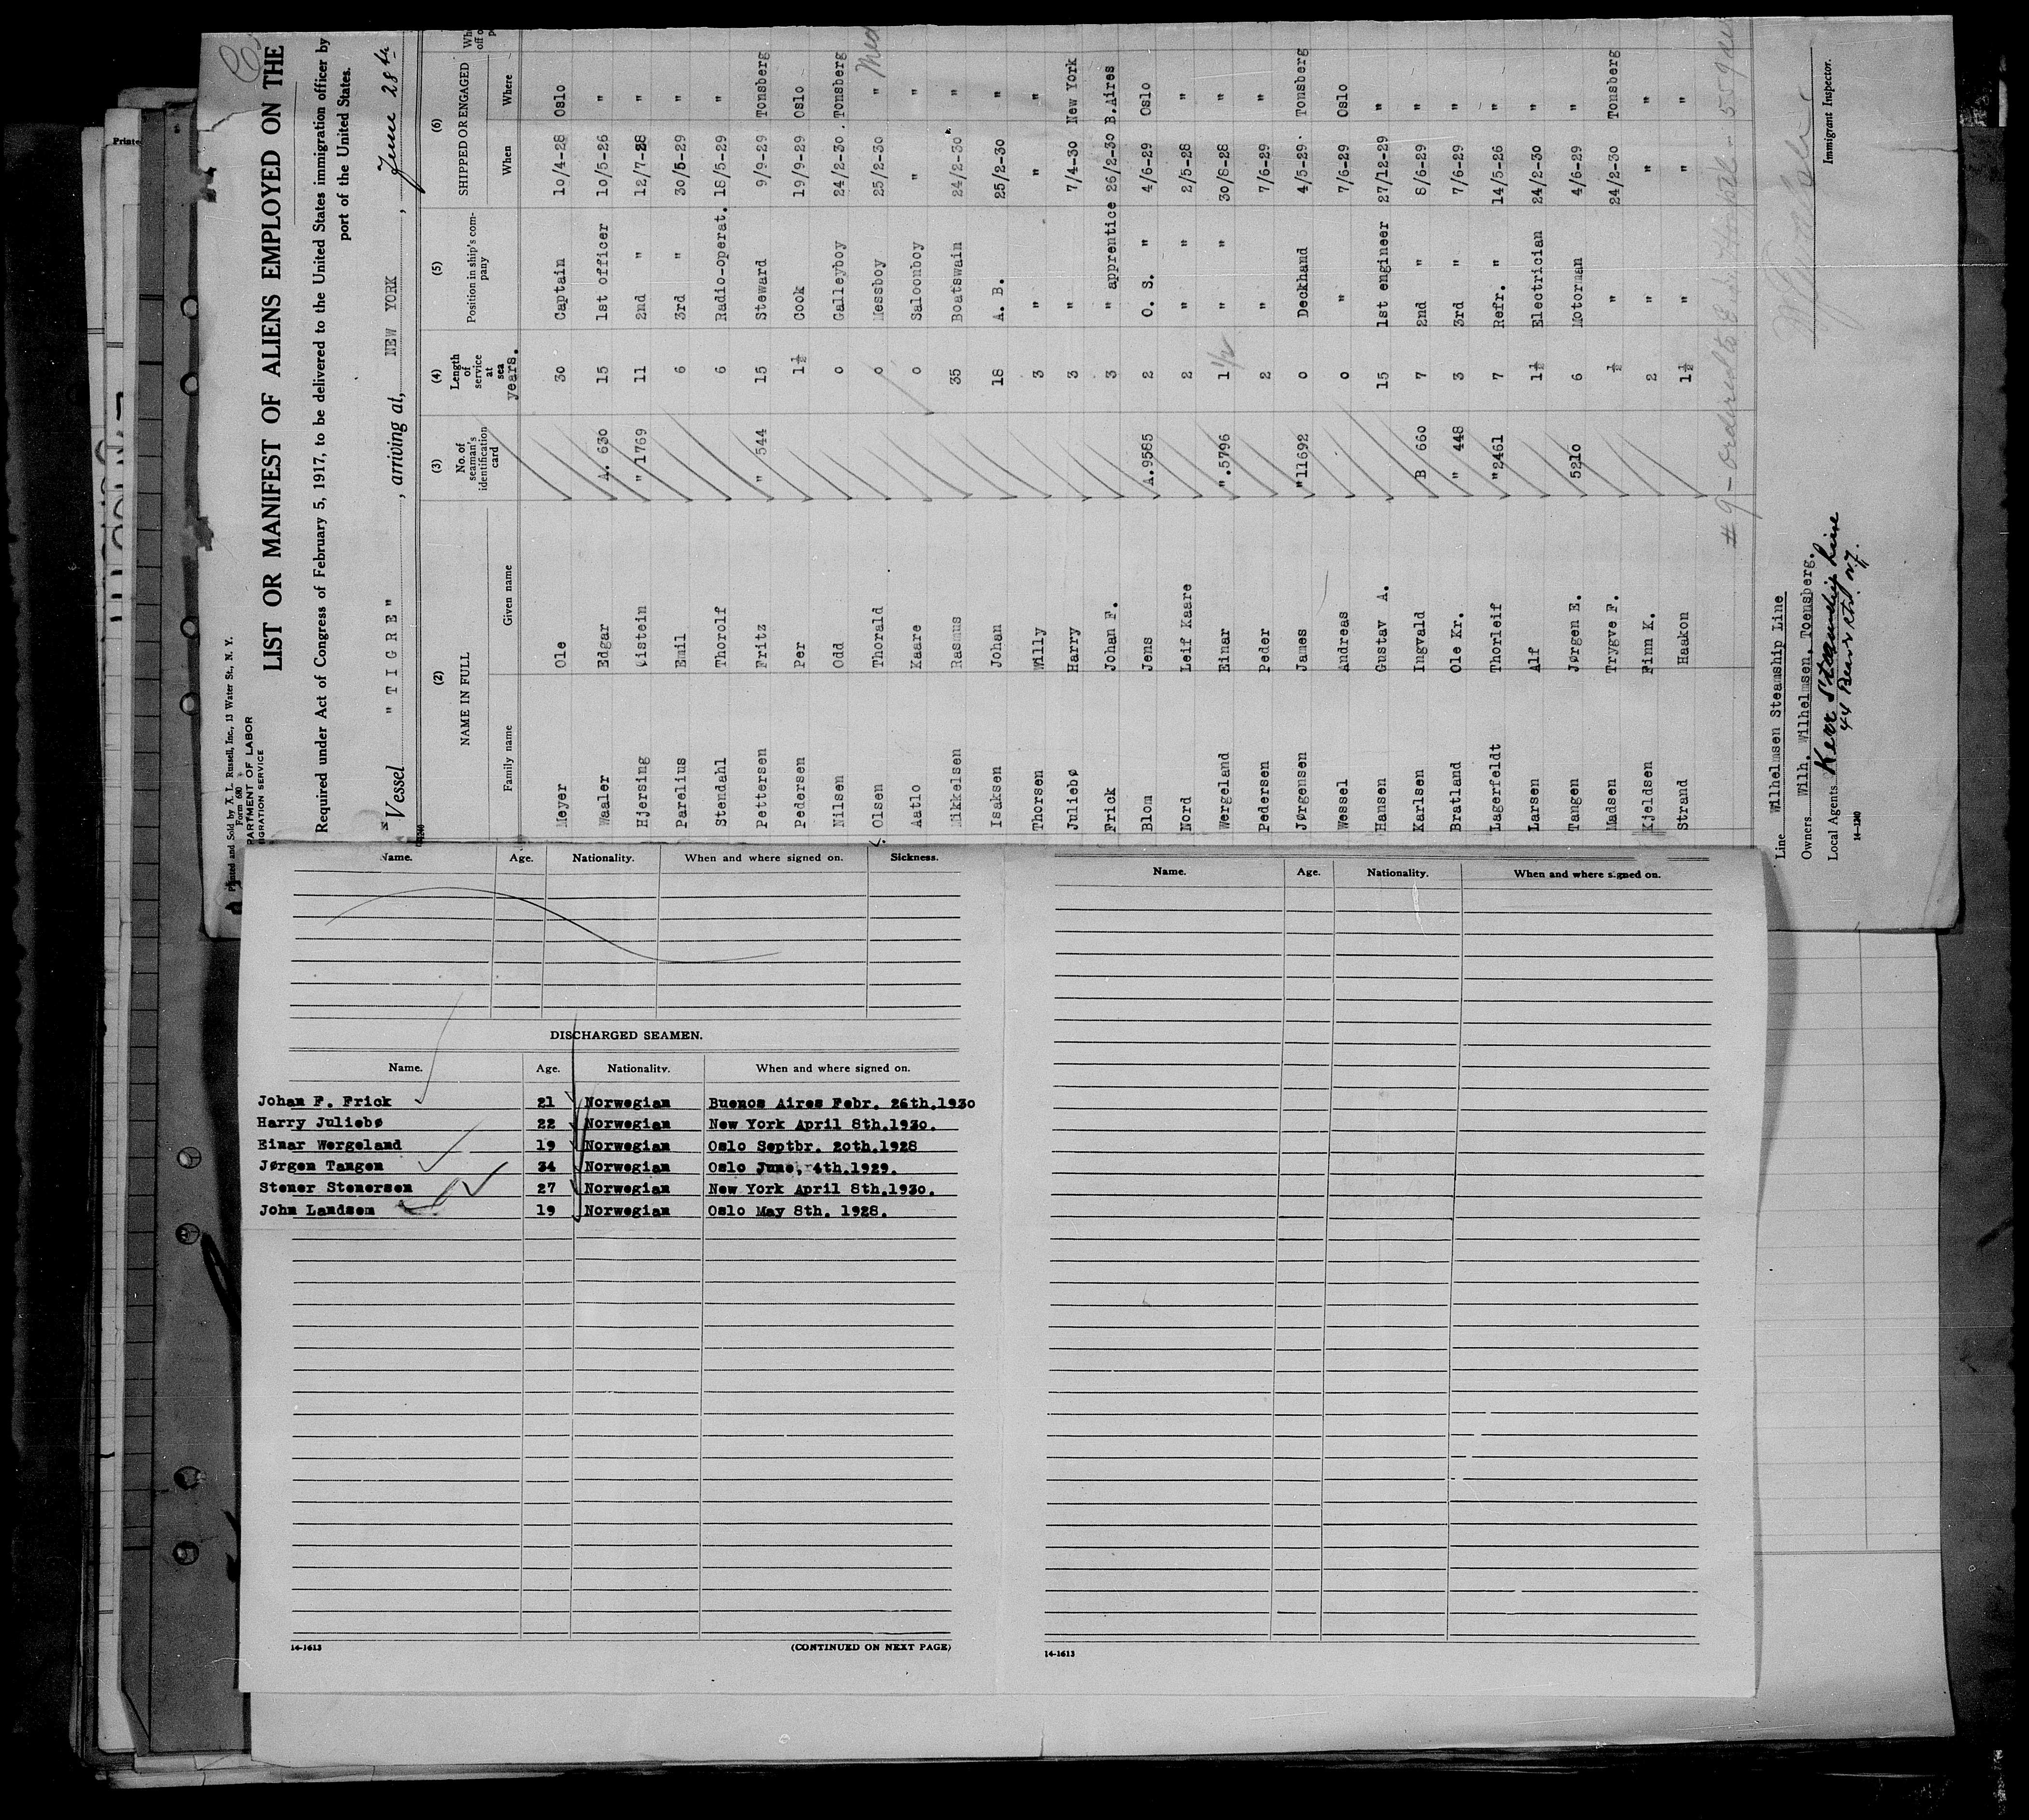 Printed and Sold by A. L. Russell, Inc., 13 Water St., N. Y.
Form 680
PARTMENT OF LABOR
IGRATION SERVICE
LIST OR MANIFEST OF ALIENS EMPLOYED ON THE
Required under Act of Congress of February 5, 1917, to be delivered to the United States immigration officer by
port of the United States.
Vessel " T I G R E " , arriving at, NEW YORK , June 28th
(2) (3) (4) (5) (6)
NAME IN FULL No. of seaman's identification card Length of service at sea years. Position in ship's company SHIPPED OR ENGAGED
Family name Given name When Where
Meyer Ole 30 Captain 10/4-28 Oslo
Waaler Edgar A. 630 15 1st officer 10/5-26 "
Hjersing Oistein " 1769 11 2nd " 12/7-28 "
Parelius Emil 6 3rd " 30/5-29 "
Stendahl Thorolf 6 Radio-operat. 18/5-29 "
Pettersen Fritz " 544 15 Steward 9/9-29 Tonsberg
Pedersen Per 1½ Cook 19/9-29 Oslo
Nilsen Odd 0 Galleyboy 24/2-30. Tonsberg
Olsen Thorald 0 Messboy 25/2-30 "
Aatlo Kaare 0 Saloonboy " "
Mikkelsen Rasmus 35 Boatswain 24/2-30 "
Isaksen Johan 18 A. B. 25/2-30 "
Thorsen Willy 3 " " "
Juliebø Harry 3 " 7/4-30 New York
Frick Johan F. 3 " apprentice 26/2-30 B.Aires
Blom Jens A.9585 2 O. S. " 4/6-29 Oslo
Nord Leif Kaare 2 " " 2/5-28 "
Wergeland Einar ".5796 1 1/2 " " 30/8-28 "
Pedersen Peder 2 " 7/6-29 "
Jørgensen James "11692 0 Deckhand 4/5-29. Tonsberg
Wessel Andreas 0 " 7/6-29 Oslo
Hansen Gustav A. 15 1st engineer 27/12-29 "
Karlsen Ingvald B 660 7 2nd " 8/6-29 "
Bratland Ole Kr. " 448 3 3rd " 7/6-29 "
Lagerfeldt Thorleif "2461 7 Refr. " 14/5-26 "
Larsen Alf 1½ Electrician 24/2-30 "
Tangen Jørgen E. 5210 6 Motorman 4/6-29 "
Madsen Trygve F. ½ " 24/2-30 Tonsberg
Kjeldsen Finn K. 2 " " "
Strand Haakon 1½ " " "
Line Wilhelmsen Steamship Line
Owners Wilh. Wilhelmsen, Toensberg.
Local Agents Kerr Steamship Line
44 Beaver str. NY.
Immigrant Inspector.
14-1240
Name. Age. Nationality. When and where signed on. Sickness.
DISCHARGED SEAMEN.
Name. Age. Nationality. When and where signed on.
Johan F. Frick 21 Norwegian Buenos Aires Febr. 26th.1930
Harry Juliebø 22 Norwegian New York April 8th.1930.
Einar Wergeland 19 Norwegian Oslo Septbr. 20th.1928
Jørgen Tangen 34 Norwegian Oslo June, 4th.1929.
Stener Stenersen 27 Norwegian New York April 8th.1930.
John Landsem 19 Norwegian Oslo May 8th. 1928.
14-1613 (CONTINUED ON NEXT PAGE)
Name. Age. Nationality. When and where signed on.
14-1613